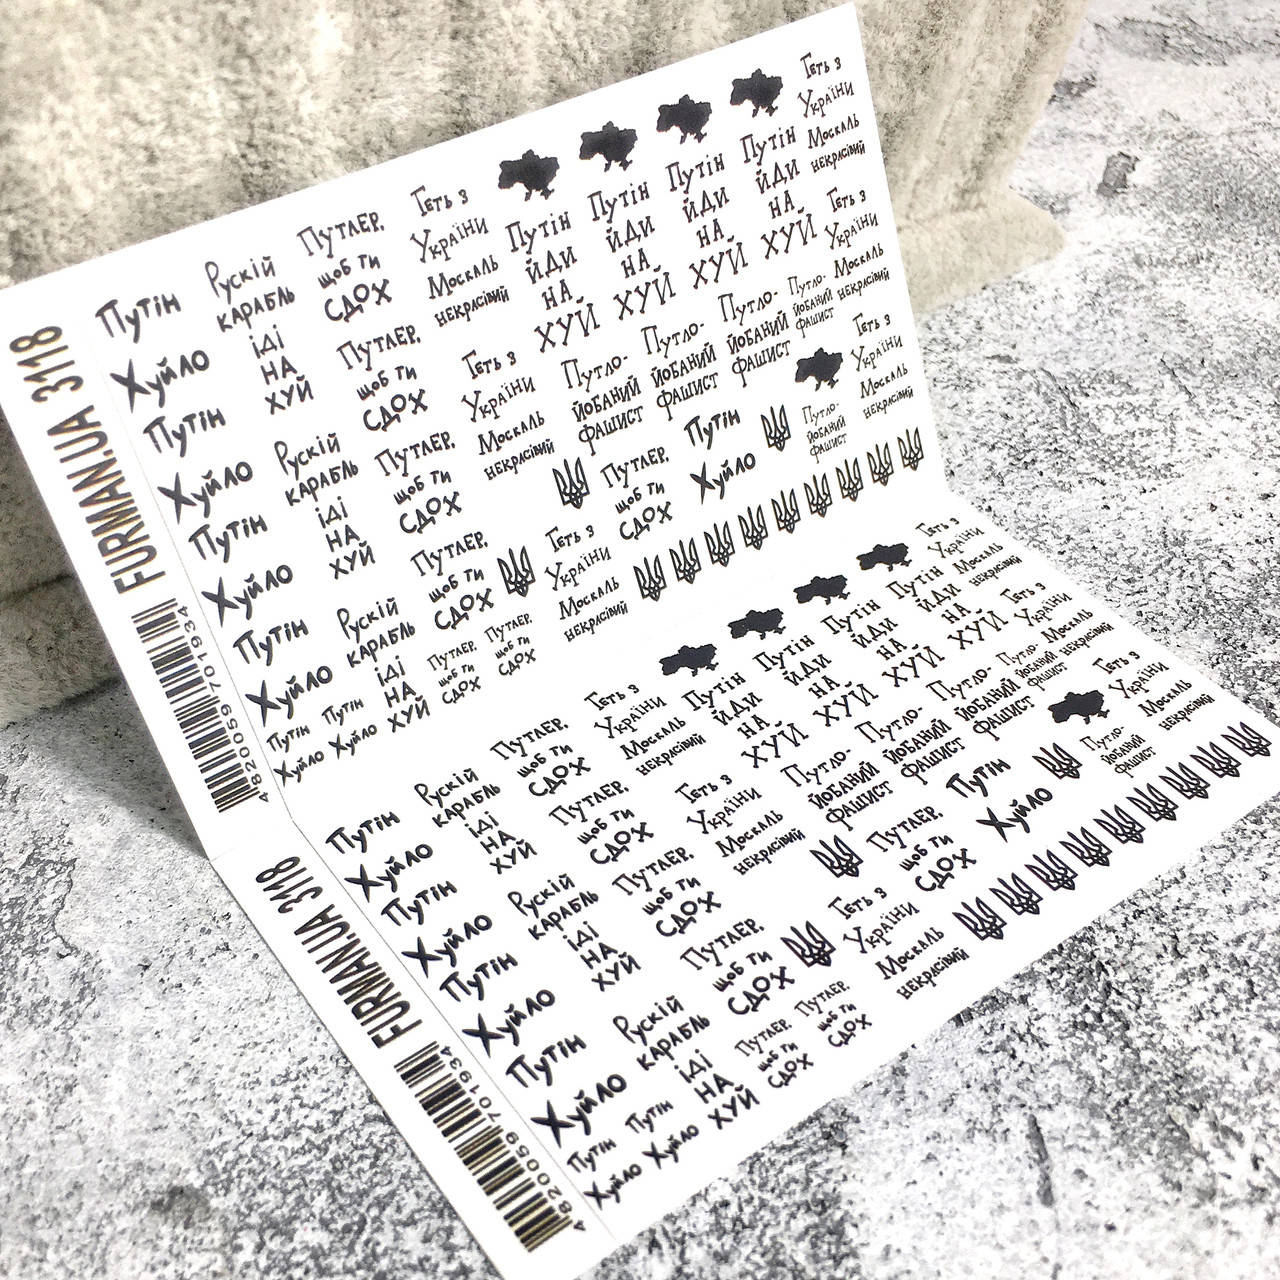 FURMAN.UA 3118
4820059 701934
Путін
Хуйло
Путін
Хуйло
Путін
Хуйло
Путін
Хуйло
Путін
Хуйло
Путін
Хуйло
Рускій
карабль
іді
на
хуй
Рускій
карабль
іді
на
хуй
Рускій
карабль
іді
на
хуй
Путлер,
щоб ти
сдох
Путлер,
щоб ти
сдох
Путлер,
щоб ти
сдох
Путлер,
щоб ти
сдох
Путлер,
щоб ти
сдох
Путлер,
щоб ти
сдох
Геть з
України
Москаль
некрасівий
Геть з
України
Москаль
некрасівий
Геть з
України
Москаль
некрасівий
Путін
йди
на
хуй
Путін
йди
на
хуй
Путін
йди
на
хуй
Путін
йди
на
хуй
Путло-
йобаний
фашист
Путло-
йобаний
фашист
Путло-
йобаний
фашист
Путло-
йобаний
фашист
Путлер,
щоб ти
сдох
Путін
Хуйло
Путло-
йобаний
фашист
Геть з
України
Москаль
некрасівий
Геть з
України
Москаль
некрасівий
Геть з
України
Москаль
некрасівий
FURMAN.UA 3118
4820059 701934
Путін
Хуйло
Путін
Хуйло
Путін
Хуйло
Путін
Хуйло
Путін
Хуйло
Путін
Хуйло
Рускій
карабль
іді
на
хуй
Рускій
карабль
іді
на
хуй
Рускій
карабль
іді
на
хуй
Путлер,
щоб ти
сдох
Путлер,
щоб ти
сдох
Путлер,
щоб ти
сдох
Путлер,
щоб ти
сдох
Путлер,
щоб ти
сдох
Путлер,
щоб ти
сдох
Геть з
України
Москаль
некрасівий
Геть з
України
Москаль
некрасівий
Геть з
України
Москаль
некрасівий
Путін
йди
на
хуй
Путін
йди
на
хуй
Путін
йди
на
хуй
Путін
йди
на
хуй
Путло-
йобаний
фашист
Путло-
йобаний
фашист
Путло-
йобаний
фашист
Путло-
йобаний
фашист
Путлер,
щоб ти
сдох
Путін
Хуйло
Путло-
йобаний
фашист
Геть з
України
Москаль
некрасівий
Геть з
України
Москаль
некрасівий
Геть з
України
Москаль
некрасівий